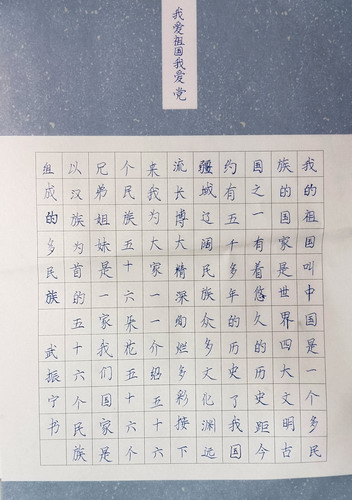 我爱祖国我爱党
我的祖国叫中国是一个多民
族的国家是世界四大文明古
国之一有着悠久的历史距今
约有五千多年的历史了我国
疆域辽阔民族众多文化渊远
流长博大精深绚烂多彩接下
来我为大家一一介绍五十六
个民族五十六朵花五十六个
兄弟姐妹是一家我们国家是
以汉族为首的五十六个民族
组成的多民族 武振宁书